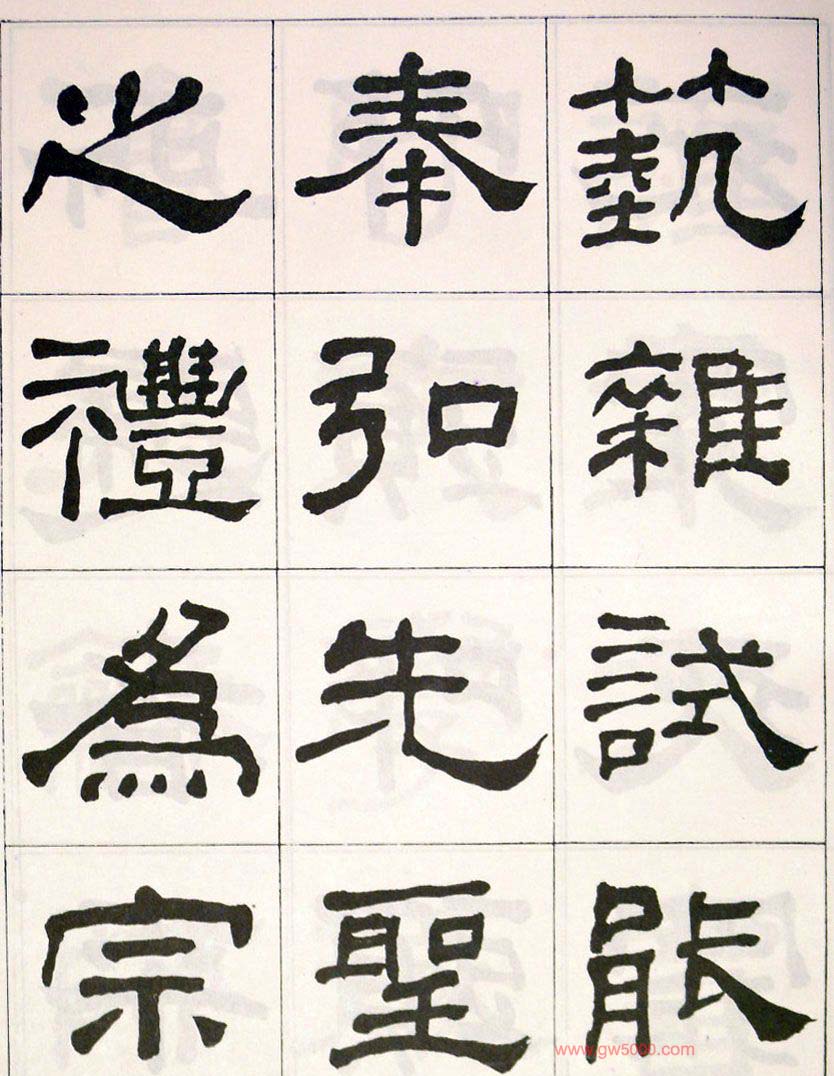 藝雜試能
奉弘先聖
之禮爲宗
www.gw5000.com